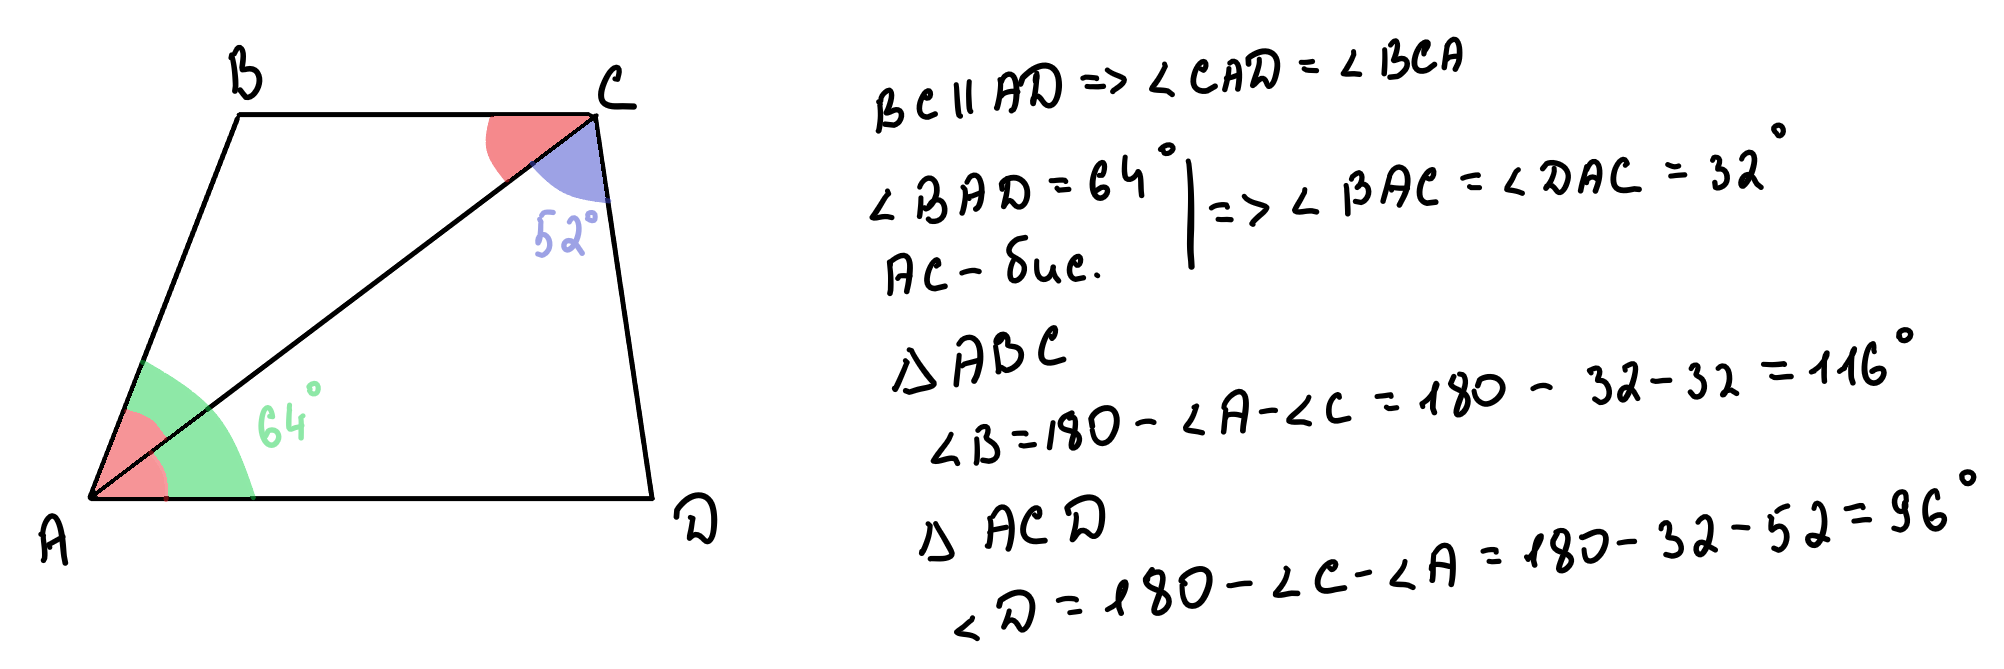 B
C
52°
64°
A
D
BC || AD => ∠CAD = ∠BCA
∠BAD = 64°
AC - бис.
| => ∠BAC = ∠DAC = 32°
△ ABC
∠B = 180 - ∠A - ∠C = 180 - 32 - 32 = 116°
△ ACD
∠D = 180 - ∠C - ∠A = 180 - 32 - 52 = 96°